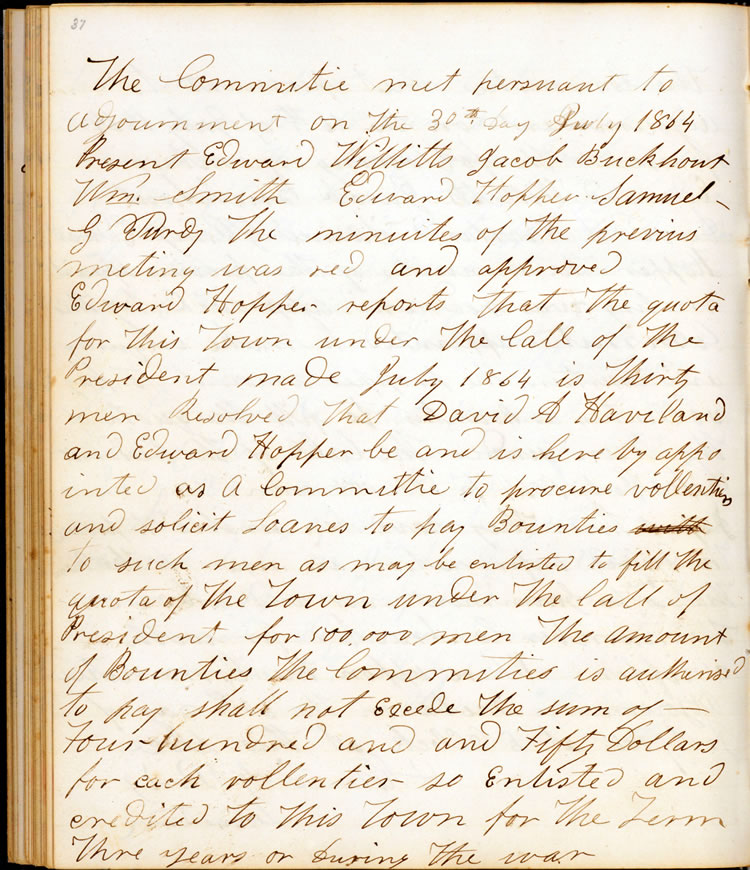 37
The Committie met persuant to
adjournment on the 30th day July 1864
Present Edward Willitts Jacob Buckhout
Wm. Smith Edward Hopper Samuel-
G Purdy The minuites of the previus
meting was red and approved
Edward Hopper reports that the quota
for this Town under the Call of the
President made July 1864 is thirty
men Resolved that David A Haviland
and Edward Hopper be and is here by appo
inted as a Committie to procure vollentiers
and solicit Loanes to pay Bounties
to such men as may be enlisted to fill the
quota of the Town under the Call of
President for 500.000 men The amount
of Bounties the Committies is autherised
to pay shall not Excede the sum of —
Four-hundred and and Fifty Dollars
for each vollentier so Enlisted and
credited to this Town for the Term
Thre years or During the war